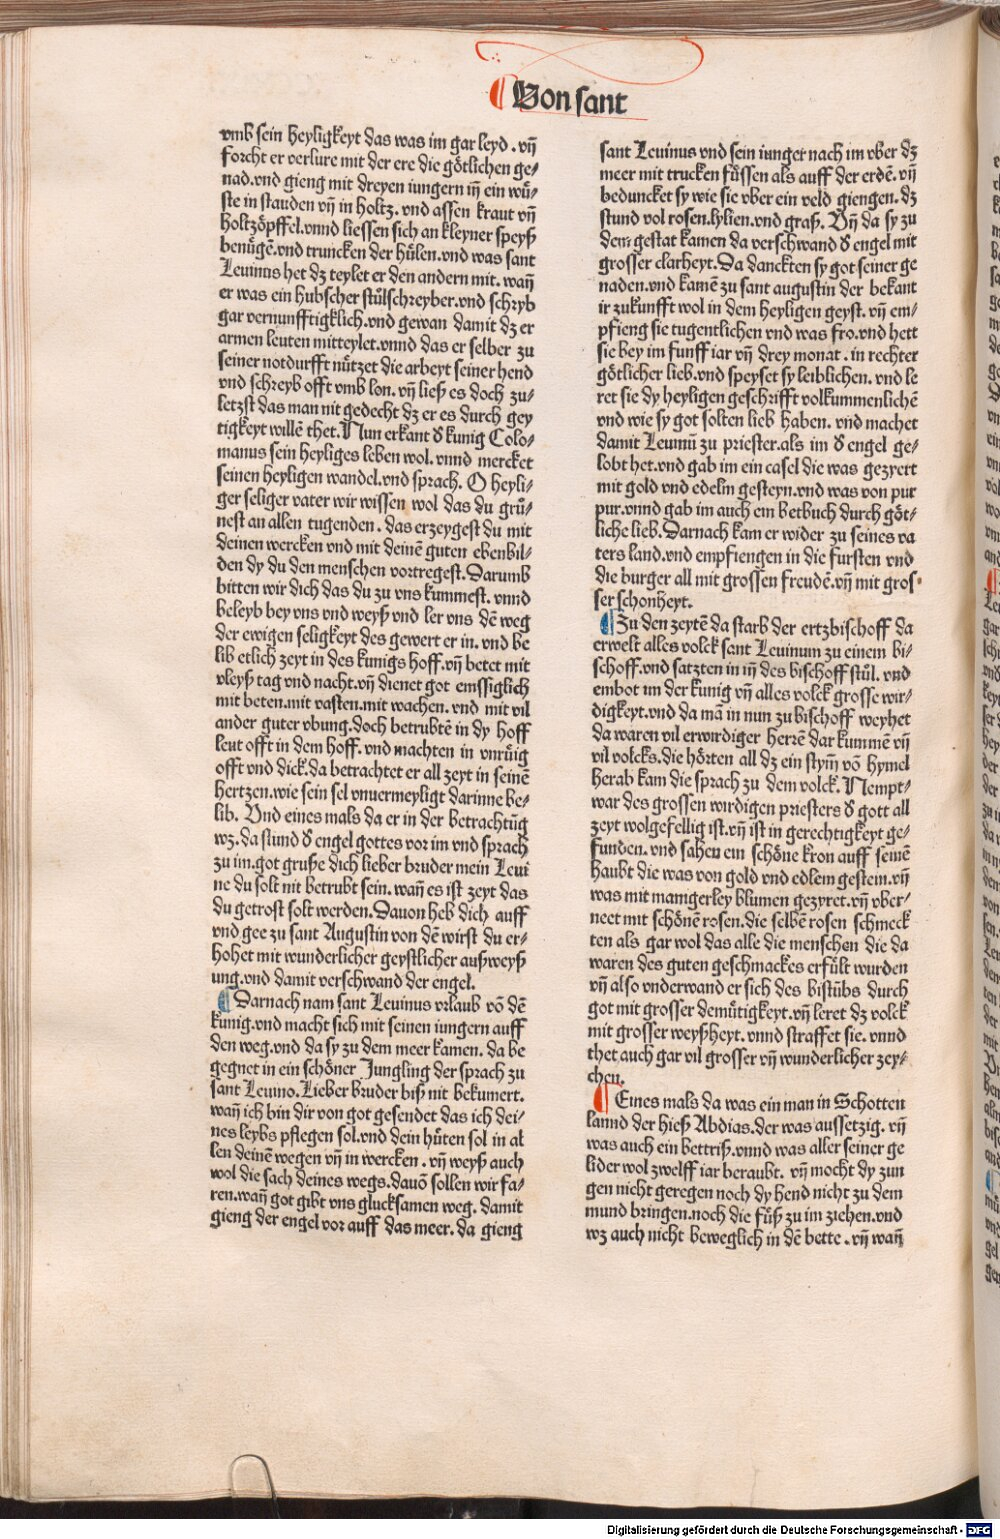 Von sant
vmb sein heyligkeyt das was im gar leyd . vñ
forcht er verlure mit der ere die götlichen ge⸗
nad.vnd gieng mit dreyen iungern iñ ein wü⸗
ste in stauden vñ in holtz. vnd assen kraut vñ
holtzöpffel.vnnd liessen sich an kleyner speyß
benügẽ.vnd truncken der hülen.vnd was sant
Leuinus het dz teylet er den andern mit. wañ
er was ein hubscher stůlschreyber.vnd schryb
gar vernunfftigklich.vnd gewan damit dz er
armen leuten mitteylet.vnnd das er selber zu
seiner notdurfft nützet die arbeyt seiner hend
vnd schreyb offt vmb lon. vñ ließ es doch zu⸗
letzst das man nit gedecht dz er es durch gey
tigkeyt willẽ thet. Nun erkant d̕ kunig Colo⸗
manus sein heyliges leben wol. vnnd mercket
seinen heyligen wandel.vnd sprach. O heyli⸗
ger seliger vater wir wissen wol das du grů⸗
nest an allen tugenden. das erzeygest du mit
deinen wercken vnd mit deinẽ guten ebenbil⸗
den dy du den menschen vortregest. Darumb
bitten wir dich das du zu vns kummest. vnnd
beleyb bey vns vnd weyß vnd ler vns dẽ weg
der ewigen seligkeyt des gewert er in. vnd be
lib etlich zeyt in des kunigs hoff. vñ betet mit
vleyß tag vnd nacht.vñ dienet got emssiglich
mit beten.mit vasten.mit wachen. vnd mit vil
ander guter vbung.doch betrubtẽ in dy hoff
leut offt in dem hoff. vnd machten in vnrüig
offt vnd dick.da betrachtet er all zeyt in seinẽ
hertzen.wie sein sel vnuermeyligt darinne be⸗
lib. Vnd eines mals da er in der betrachtũg
wz.da stund d̕ engel gottes vor im vnd sprach
zu im.got gruße dich lieber bruder mein Leui
ne du solt nit betrubt sein. wañ es ist zeyt das
du getrost solt werden. Dauon heb dich auff
vnd gee zu sant Augustin von dẽ wirst du er⸗
hohet mit wunderlicher geystlicher außweyß
ung.vnd damit verschwand der engel.
Darnach nam sant Leuinus vrlaub võ dẽ
kunig.vnd macht sich mit seinen iungern auff
den weg.vnd da sy zu dem meer kamen. da be
gegnet in ein schöner Jungling der sprach zu
sant Leuino. Lieber bruder biß nit bekumert.
wañ ich bin dir von got gesendet das ich dei⸗
nes leybs pflegen sol.vnd dein hüten sol in al
len deinẽ wegen vñ in wercken . vñ weyß auch
wol die sach deines wegs.dauõ sollen wir fa⸗
ren.wañ got gibt vns glucksamen weg. damit
gieng der engel vor auff das meer. da gieng
sant Leuinus vnd sein iunger nach im vber dz
meer mit trucken füssen als auff der erdẽ. vñ
beduncket sy wie sie vber ein veld giengen. dz
stund vol rosen.lylien.vnd graß. Vñ da sy zu
dem gestat kamen da verschwand d̕ engel mit
grosser clarheyt. Da danckten sy got seiner ge
naden.vnd kamẽ zu sant augustin der bekant
ir zukunfft wol in dem heyligen geyst. vñ em⸗
pfieng sie tugentlichen vnd was fro.vnd hett
sie bey im funff iar vñ drey monat . in rechter
götlicher lieb.vnd speyset sy leiblichen. vnd le
ret sie dy heyligen geschrifft volkummenlichẽ
vnd wie sy got solten lieb haben. vnd machet
damit Leuinũ zu priester.als im d̕ engel ge⸗
lobt het.vnd gab im ein casel die was gezyert
mit gold vnd edelm gesteyn.vnd was von pur
pur.vnnd gab im auch ein betbuch durch göt⸗
liche lieb. Darnach kam er wider zu seines va
ters land.vnd empfiengen in die fursten vnd
die burger all mit grossen freudẽ.vñ mit gros⸗
ser schonheyt.
Zu den zeytẽ da starb der ertzbischoff da
erwelt alles volck sant Leuinum zu einem bi⸗
schoff.vnd satzten in iñ des bischoff stůl. vnd
embot im der kunig vñ alles volck grosse wir⸗
digkeyt.vnd da mã in nun zu bischoff weyhet
da waren vil erwirdiger herrẽ dar kummẽ vñ
vil volcks.die hörten all dz ein stym̃ võ hymel
herab kam die sprach zu dem volck. Nempt⸗
war des grossen wirdigen priesters d̕ gott all
zeyt wolgefellig ist.vñ ist in gerechtigkeyt ge⸗
funden. vnd sahen ein schöne kron auff seinẽ
haubt die was von gold vnd edlem gestein.vñ
was mit manigerley blumen gezyret. vñ vber⸗
neet mit schönẽ rosen.die selbẽ rosen schmeck
ten als gar wol das alle die menschen die da
waren des guten geschmackes erfült wurden
vñ also vnderwand er sich des bistũbs durch
got mit grosser demütigkeyt.vñ leret dz volck
mit grosser weyßheyt. vnnd straffet sie. vnnd
thet auch gar vil grosser vñ wunderlicher zey⸗
chen.
Eines mals da was ein man in Schotten
lannd der hieß Abdias.der was aussetzig. vñ
was auch ein bettriß.vnnd was aller seiner ge
lider wol zwelff iar beraubt. vñ mocht dy zun
gen nicht geregen noch dy hend nicht zu dem
mund bringen.noch die füß zu im ziehen.vnd
wz auch nicht beweglich in dẽ bette . vñ wañ
Digitalisierung gefördert durch die Deutsche Forschungsgemeinschaft - DFG